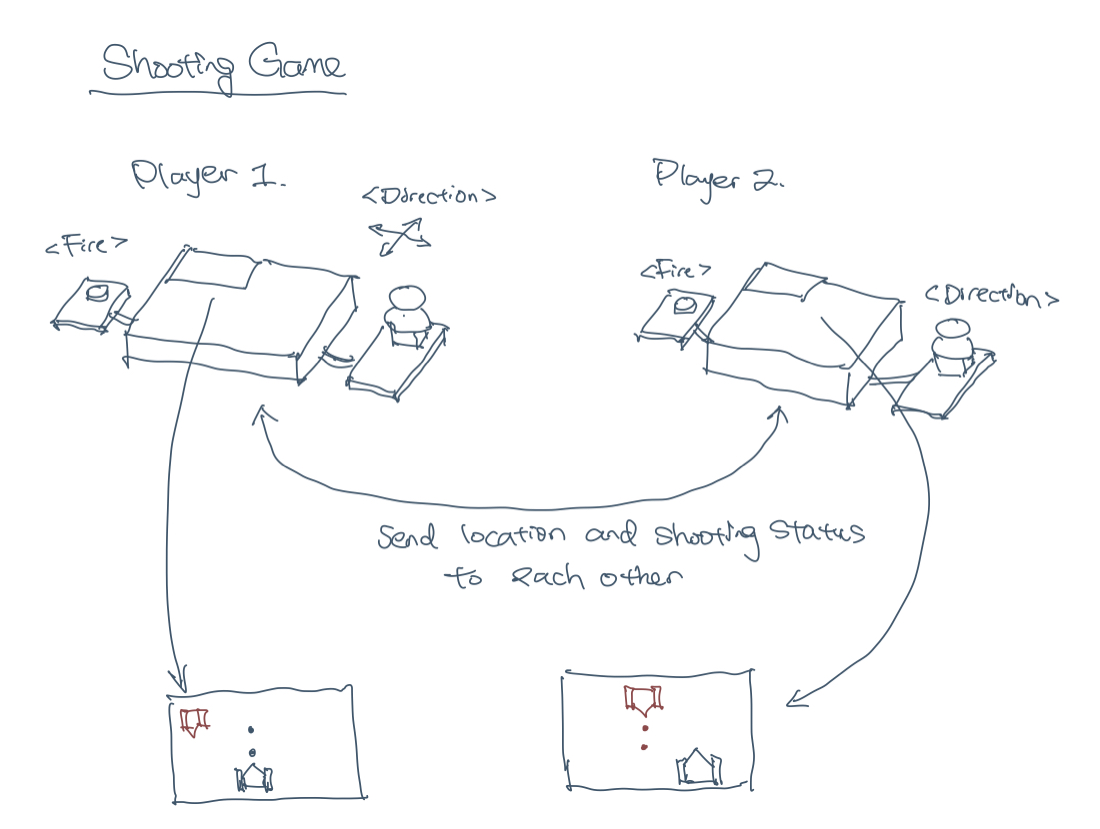 Shooting Game
Player 1.
<Direction>
<Fire>
Player 2.
<Fire>
<Direction>
Send location and shooting status
to each other